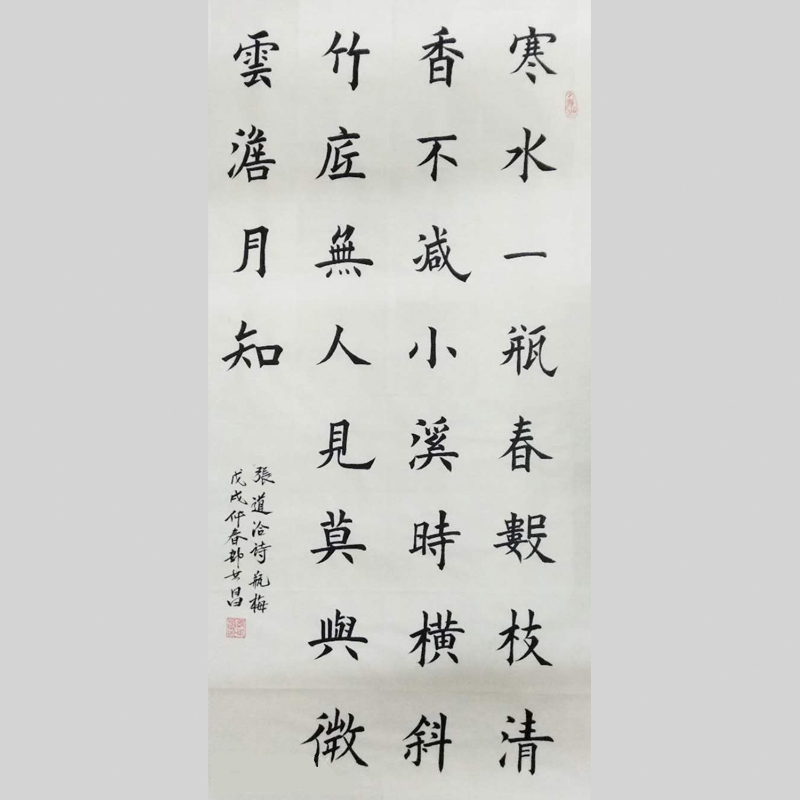 寒水一瓶春數枝清
香不減小溪時橫斜
竹底無人見莫與微
雲澹月知
張道洽詩瓶梅
戊戌仲春昌